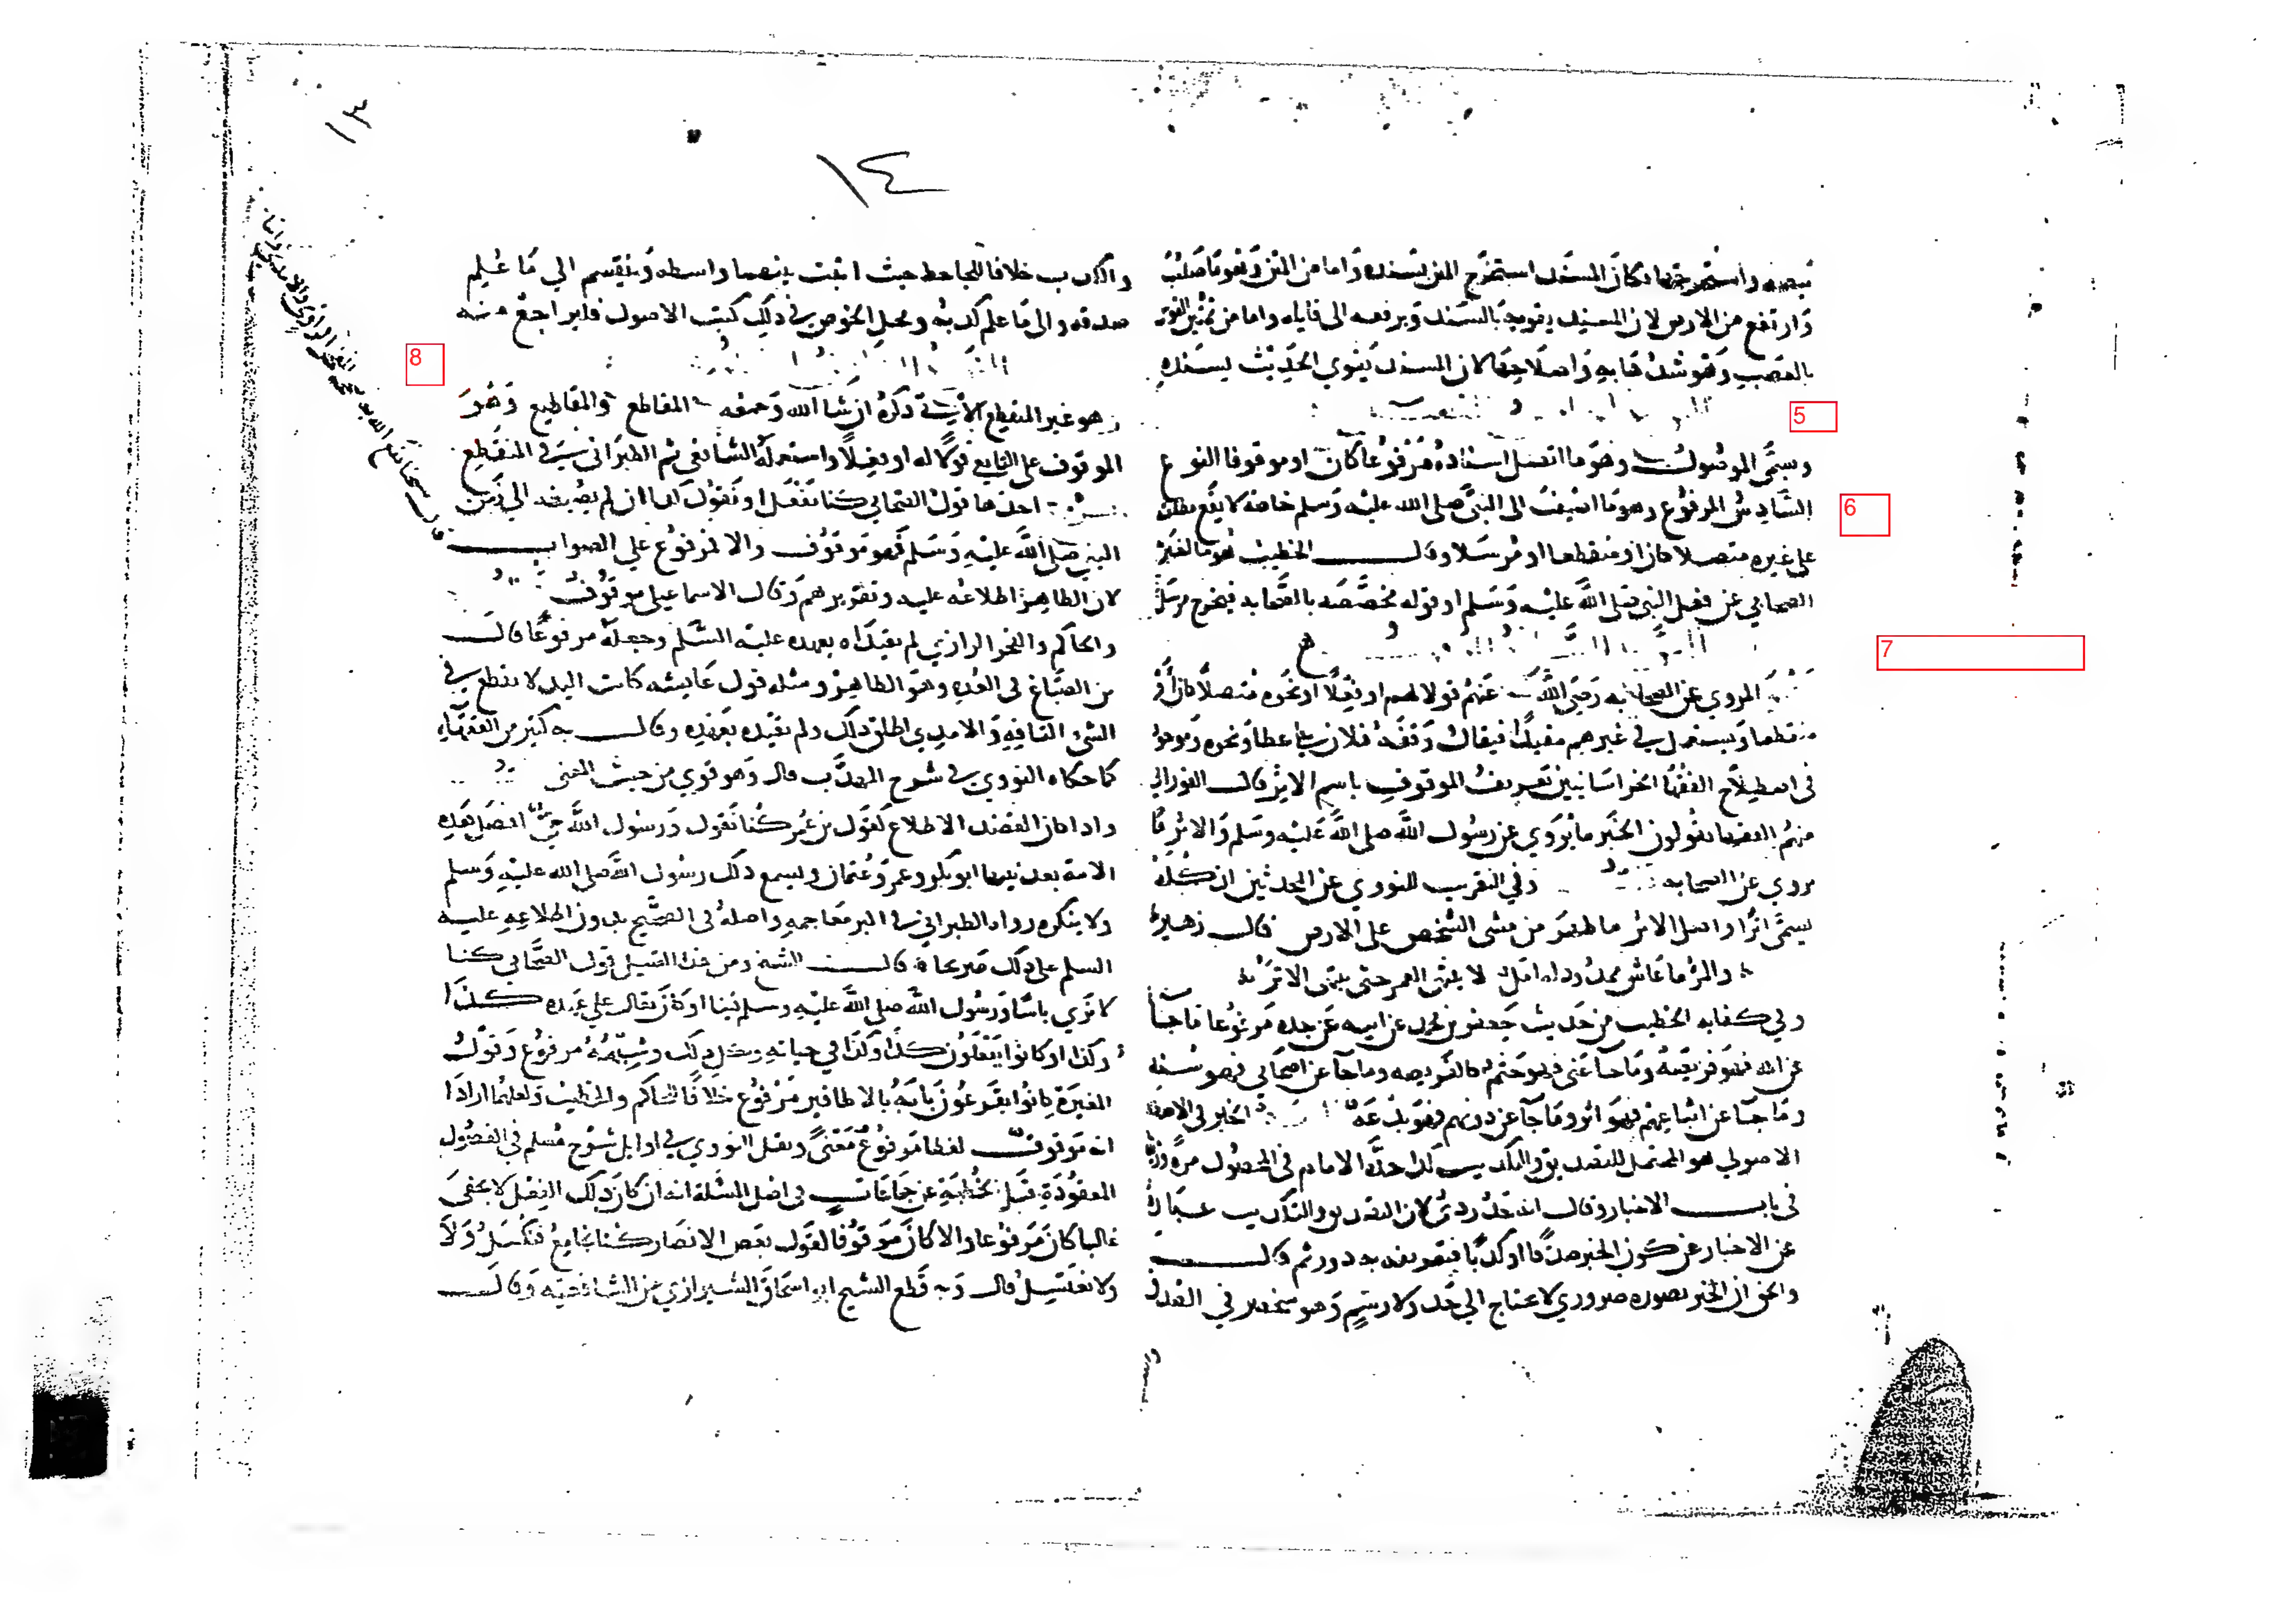 ١٣
١٤
واستخرجتها فكان المسند استخرج المتن بسنده واما من المتن وهو ما صلب
وارتفع من الارض لان المسند يقويه بالسند ويرفعه الى قايله واما من تمتين القوس
بالعصب وهو شدها به واصلاحها لان المسند يقوي الحديث بسنده
5
ويسمى الموصول وهو ما اتصل اسناده مرفوعا كان او موقوفا النوع
6
السادس المرفوع وهو ما اضيف الى النبي صلى الله عليه وسلم خاصة لا يقع مطلقه
على غيره متصلا كان او منقطعا او مرسلا وقال الخطيب هو ما اخبر
الصحابي عن فعل النبي صلى الله عليه وسلم او قوله مخصصه بالصحابة فيخرج مرسل
7
المروي عن الصحابة رضي الله عنهم قولا لهم او فعلا او نحوه متصلا كان او
منقطعا ويستعمل في غيرهم مقيدا فيقال وقفه فلان على عطا ونحوه وموجود
في اصطلاح الفقها الخراسانيين تعريف الموقوف باسم الاثر قال الفوراني
منهم الفقها يقولون الخبر ما يروى عن رسول الله صلى الله عليه وسلم والاثر ما
يروى عن الصحابة وفي التقريب للنووي عن المحدثين ان كله
يسمى اثرا واصل الاثر ما ظهر من مشي الشخص على الارض قال زهير
والمرء ما عاش ممدود له امل لا ينتهي العمر حتى ينتهي الاثر
وفي كفاية الخطيب من حديث جعفر بن محمد عن ابيه عن جده مرفوعا ما جا
عن الله فهو فريضة وما جا عني فهو حتم كالفريضة وما جا عن اصحابي فهو سنة
وما جا عن اتباعهم فهو اثر وما جا عن دونهم فهو بدعة الخبر في الاصطلاح
الاصولي هو المحتمل للتصديق والتكذيب كذا حده الامام في المحصول مرة
في باب الاخبار وقال انه حد ردي لان التصديق والتكذيب عبارة
عن الاخبار عن كون الخبر صدقا او كذبا فتعريفه به دور ثم قال
والحق ان الخبر تصوره ضروري لا يحتاج الى حد ولا رسم وهو منحصر في الصدق
والكذب خلافا للجاحظ حيث اثبت بينهما واسطة وينقسم الى ما علم
صدقه والى ما علم كذبه ومحل الخوض في ذلك كتب الاصول فليراجع منه
8
وهو غير المنقطع الاتي ذكره ان شا الله وجمعه المقاطع والمقاطيع وهو
الموقوف على التابعي قولا له او فعلا واستعمله الشافعي ثم الطبراني في المنقطع
احدها قول الصحابي كنا نفعل او نقول كذا ان لم يضفه الى زمن
النبي صلى الله عليه وسلم فهو موقوف والا فمرفوع على الصواب
لان الظاهر اطلاعه عليه وتقريرهم وقال الاسماعيلي موقوف
والحاكم والفخر الرازي لم يقيداه بعهده عليه السلم وجعله مرفوعا قال
بن الصباغ في العدة وهو الظاهر ومثله قول عايشه كانت اليد لا تقطع في
الشي التافه والامدي اطلق ذلك ولم يقيده بعهده وقال به كثير من الفقهاء
كما حكاه النووي في شرح المهذب قال وهو قوي من حيث المعنى
واذا كان القصد الاطلاع كقول بن عمر كنا نقول ورسول الله حي افضل هذه
الامة بعد نبيها ابو بكر وعمر وعثمان ويسمع ذلك رسول الله صلى الله عليه وسلم
ولا ينكره رواه الطبراني في اكبر معاجمه واصله في الصحيح بدون اطلاعه عليه
السلم على ذلك صريحا قال الشيخ ومن هذا القبيل قول الصحابي كنا
لا نرى باسا ورسول الله صلى الله عليه وسلم فينا او كان يقال على عهده كذا
وكذا او كانوا يفعلون كذا وكذا في حياته وكل ذلك وشبهه مرفوع وقول
المغيرة كانوا يقرعون بابه بالاظافير مرفوع خلافا للحاكم والخطيب ولعلهما ارادا
انه موقوف لفظا مرفوع معنى ونقل النووي في اوايل شرح مسلم في الفصول
المعقودة قبل خطبته عن جماعات في اصل المسلة انه ان كان ذلك الفعل لا يخفى
غالبا كان مرفوعا والا كان موقوفا كقول بعض الانصار كنا نجامع فنكسل ولا
ولا نغتسل قال وبه قطع الشيخ ابو اسحاق الشيرازي من الشافعيه وقال